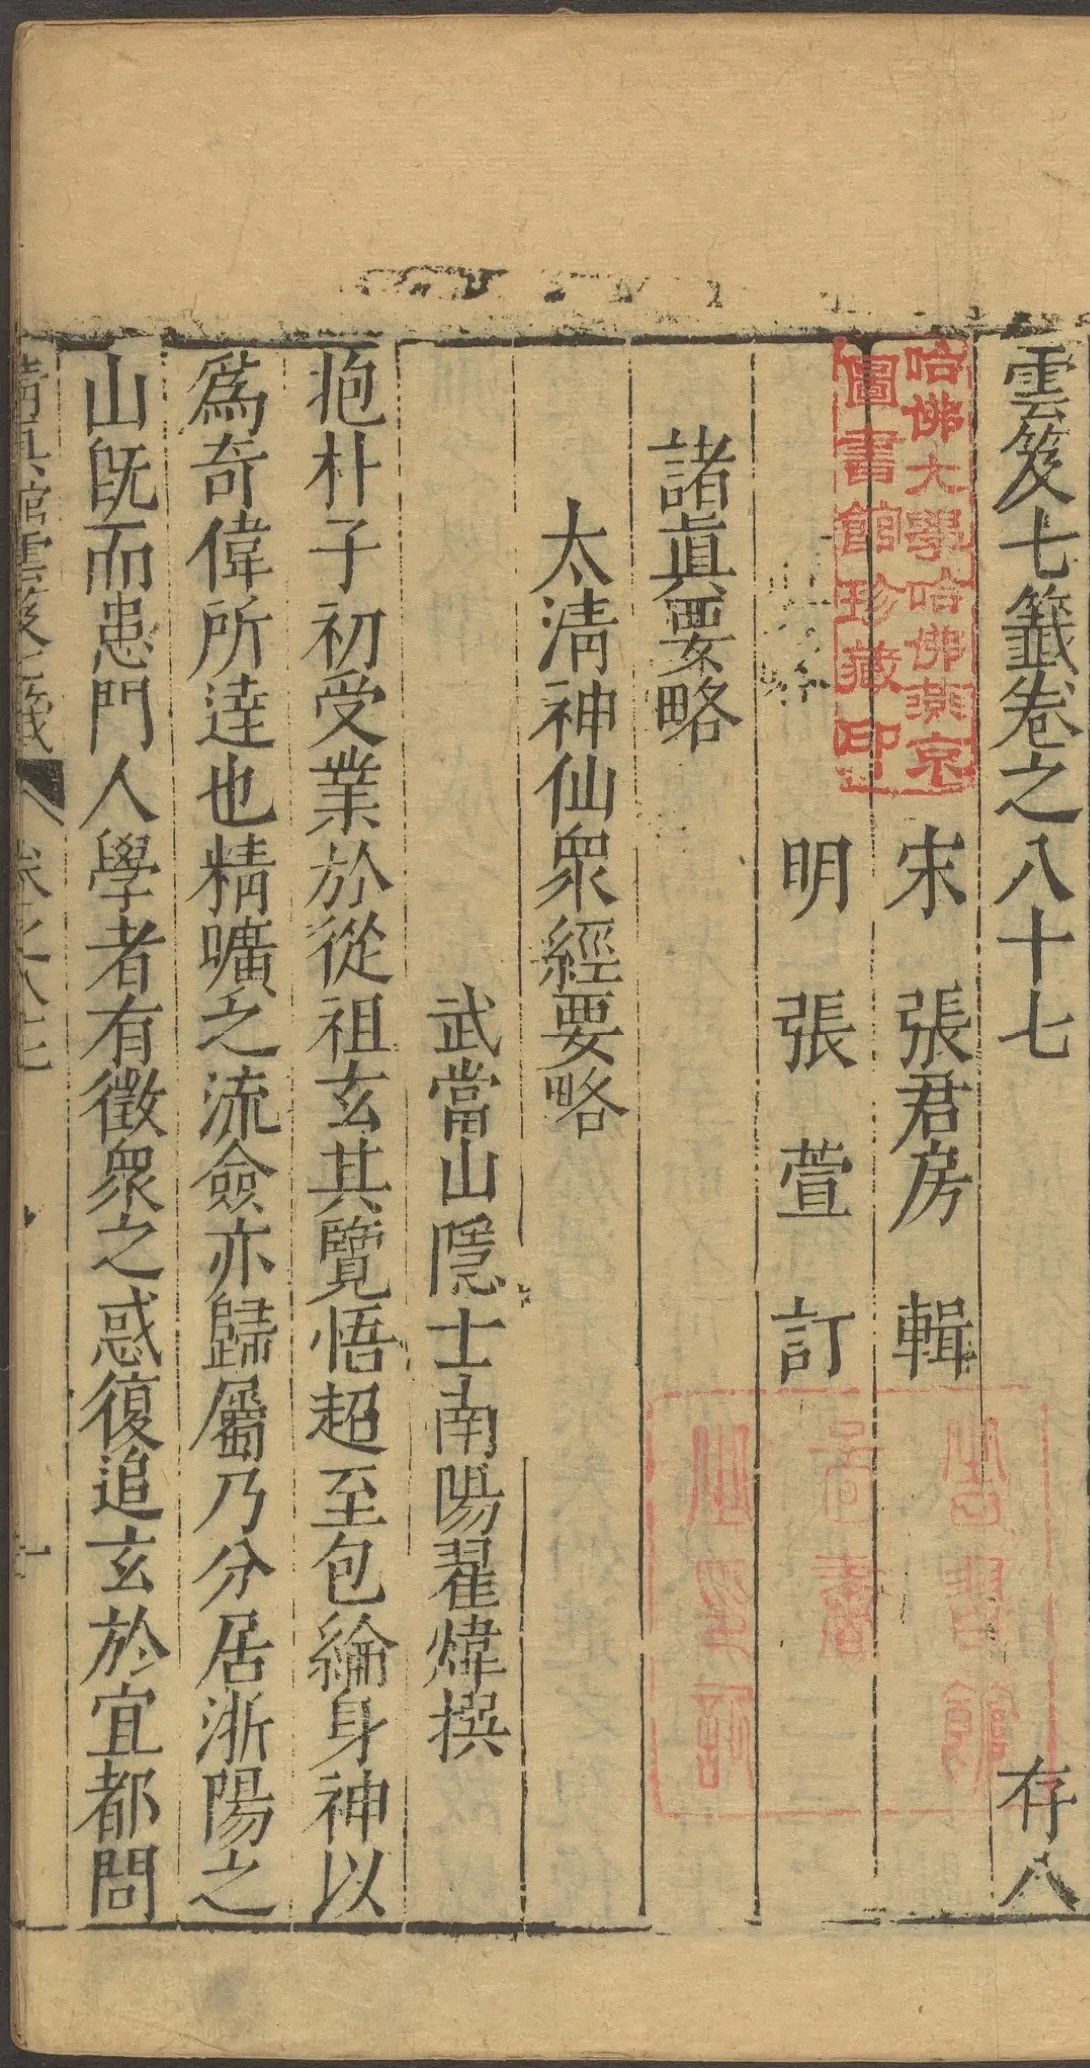 雲笈七籤卷之八十七 存八
宋 張君房 輯
明 張 萱 訂
諸眞要略
太清神仙衆經要略
武當山隱士南陽翟煒撰
抱朴子初受業於從祖玄其覽悟超至包綸身神以
爲奇偉所逹也精嚝之流僉亦歸屬乃分居浙陽之
山旣而患門人學者有徵衆之惑復追玄於宜都問
清真館雲笈七籤 卷之八十七 一
哈佛大學哈佛燕京
圖書館珍藏印